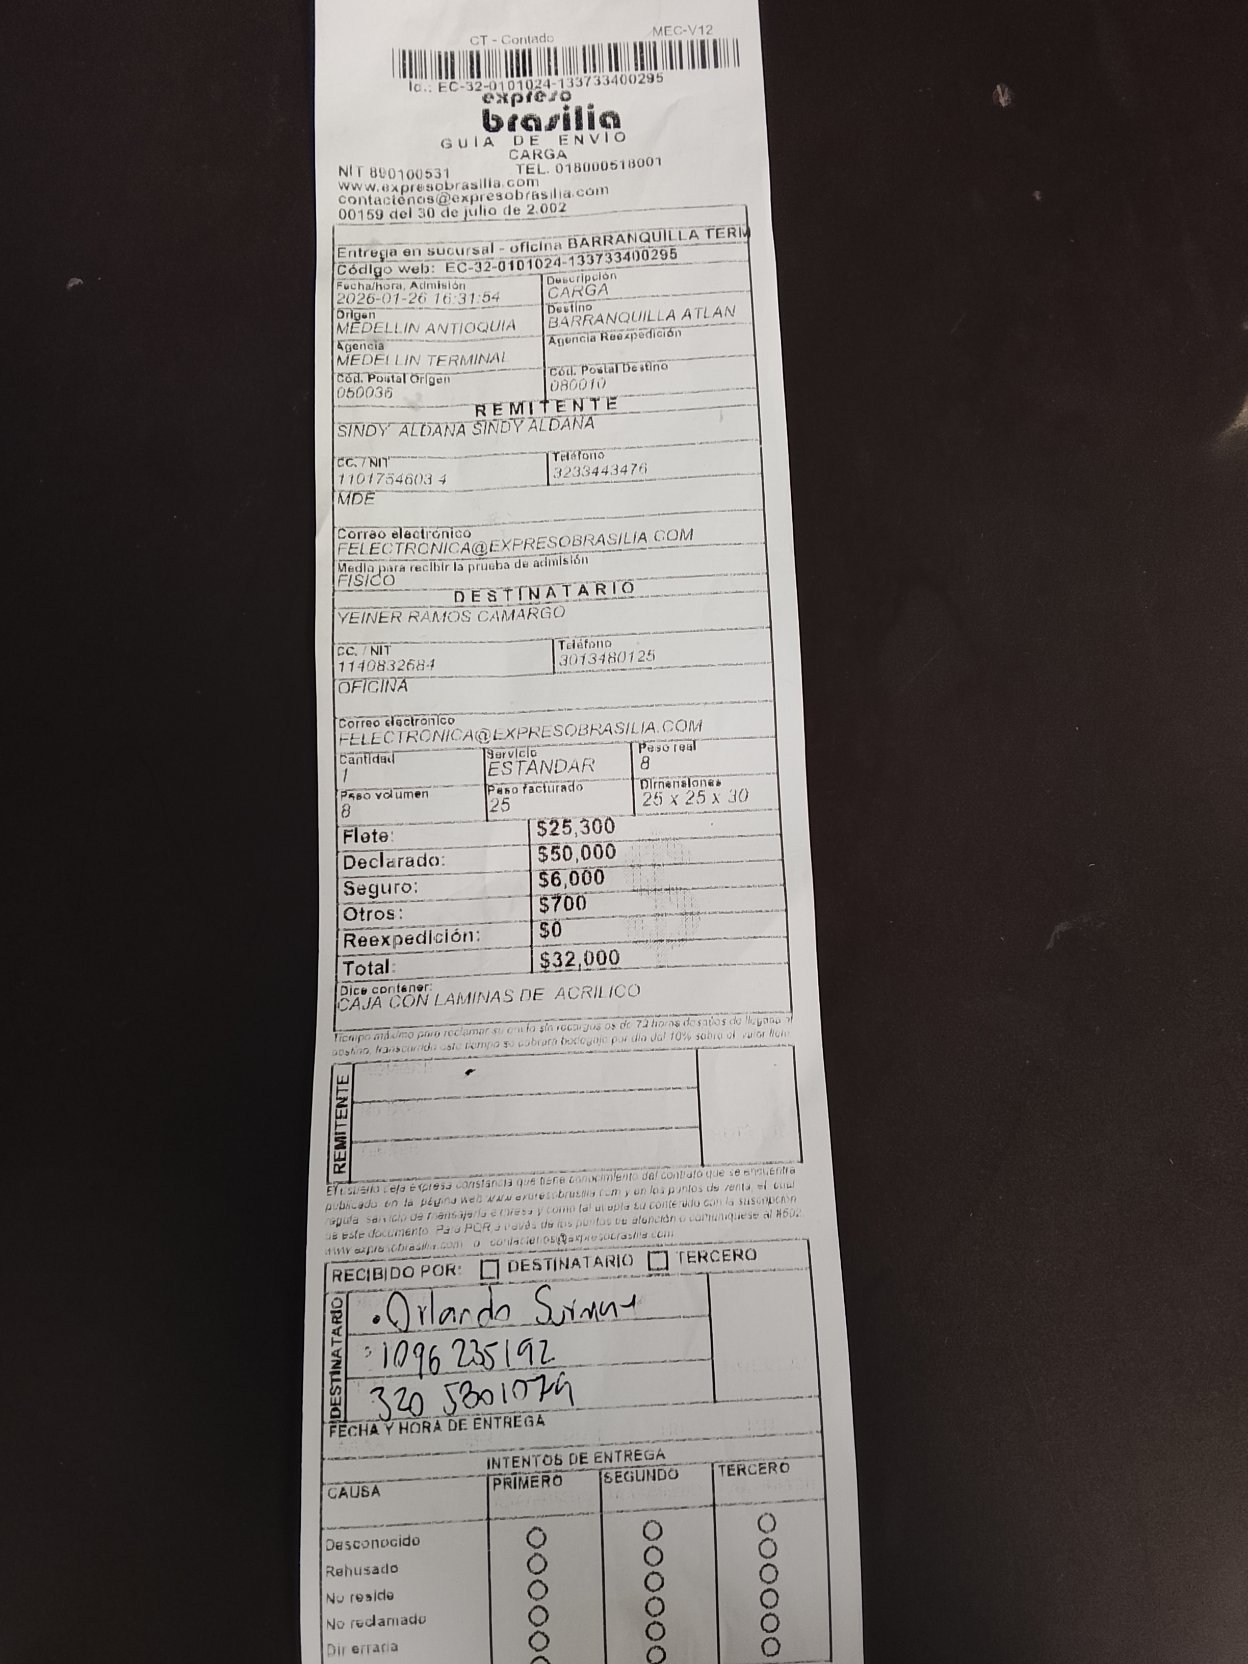 CT - Contado MEC-V12
Id.: EC-32-0101024-133733400295
expreso
brasilia
GUIA DE ENVIO
CARGA
NIT 890100531 TEL. 018000518001
www.expresobrasilia.com
contactenos@expresobrasilia.com
00159 del 30 de julio de 2.002
Entrega en sucursal - oficina BARRANQUILLA TERM
Código web: EC-32-0101024-133733400295
Fecha/hora, Admisión Descripción
2026-01-26 16:31:54 CARGA
Origen Destino
MEDELLIN ANTIOQUIA BARRANQUILLA ATLAN
Agencia Agencia Reexpedición
MEDELLIN TERMINAL
Cód. Postal Origen Cód. Postal Destino
050036 080010
REMITENTE
SINDY ALDANA SINDY ALDANA
CC. / NIT Teléfono
1101754603 4 3233443476
MDE
Correo electrónico
FELECTRONICA@EXPRESOBRASILIA.COM
Medio para recibir la prueba de admisión
FISICO
DESTINATARIO
YEINER RAMOS CAMARGO
CC. / NIT Teléfono
1140832684 3013480125
OFICINA
Correo electrónico
FELECTRONICA@EXPRESOBRASILIA.COM
Cantidad Servicio Peso real
1 ESTANDAR 8
Peso volumen Peso facturado Dimensiones
8 25 25 x 25 x 30
Flete: $25,300
Declarado: $50,000
Seguro: $6,000
Otros: $700
Reexpedición: $0
Total: $32,000
Dice contener:
CAJA CON LAMINAS DE ACRILICO
Tiempo máximo para reclamar su envío sin recargos es de 72 horas después de llegada al
destino, transcurrido este tiempo se cobrará bodegaje por día del 10% sobre el valor flete
REMITENTE
El usuario deja expresa constancia que tiene conocimiento del contrato que se encuentra
publicado en la página web www.expresobrasilia.com y en los puntos de venta, el cual
regula servicio de mensajería expresa y como tal acepta su contenido con la suscripción
de este documento. Para PQR a través de los puntos de atención o comuníquese al #502
www.expresobrasilia.com o contactenos@expresobrasilia.com
RECIBIDO POR: DESTINATARIO TERCERO
DESTINATARIO
Orlando
1096235192
320 5801079
FECHA Y HORA DE ENTREGA
INTENTOS DE ENTREGA
CAUSA PRIMERO SEGUNDO TERCERO
Desconocido
Rehusado
No reside
No reclamado
Dir errada